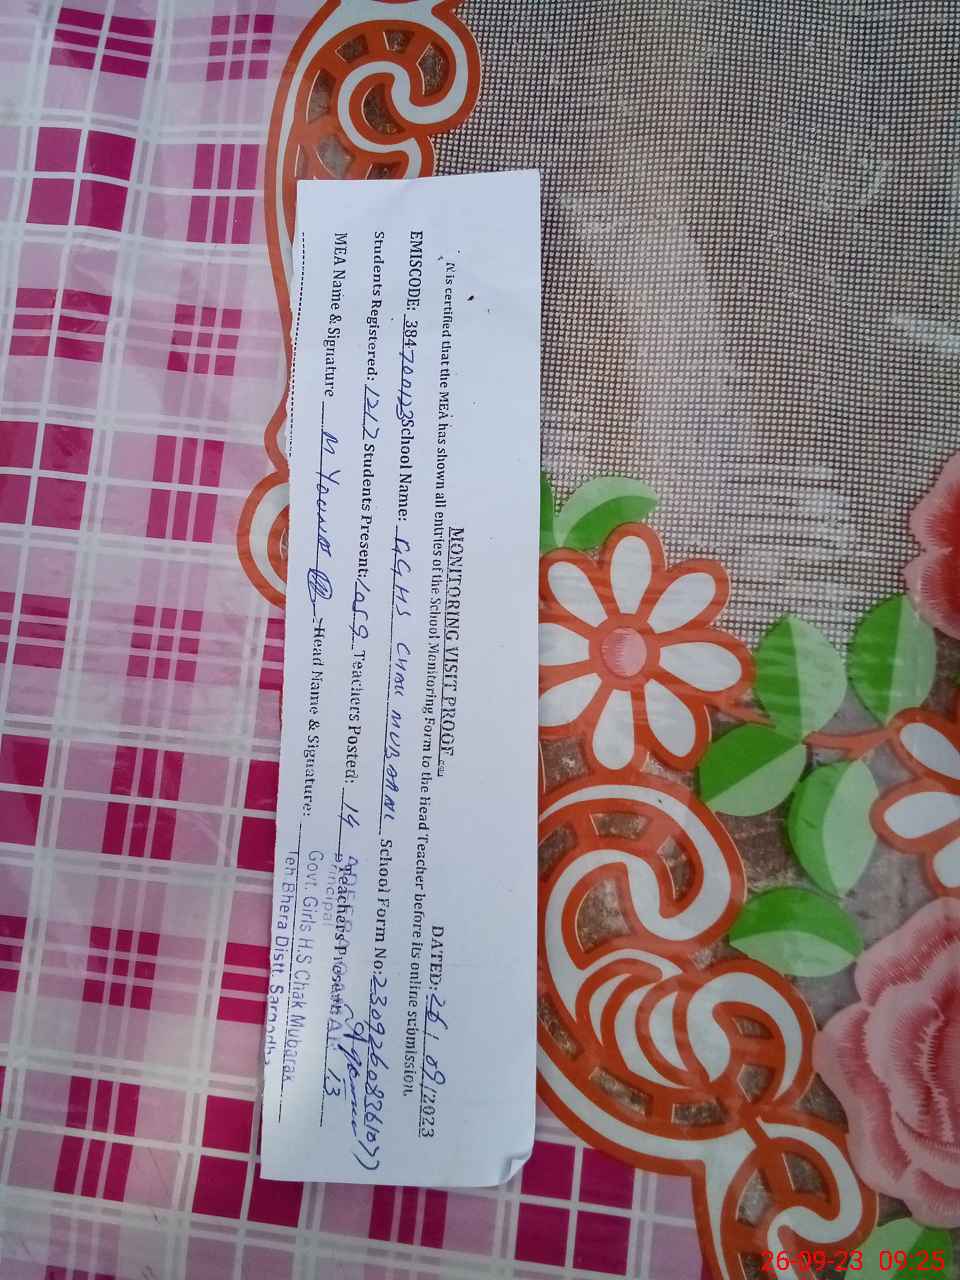 MONITORING VISIT PROOF
DATED: 26/09/2023
It is certified that the MEA has shown all entries of the School Monitoring Form to the Head Teacher before its online submission.
EMISCODE: 384700123 School Name: GGHS CHAK MUBARAK School Form No:
Students Registered: 1217 Students Present: 1059 Teachers Posted: 14 Teachers Present: 13
MEA Name & Signature M Younas Head Name & Signature:
Principal
Govt. Girls H.S Chak Mubarak
Teh Bhera Distt. Sargodha
26-09-23 09:25